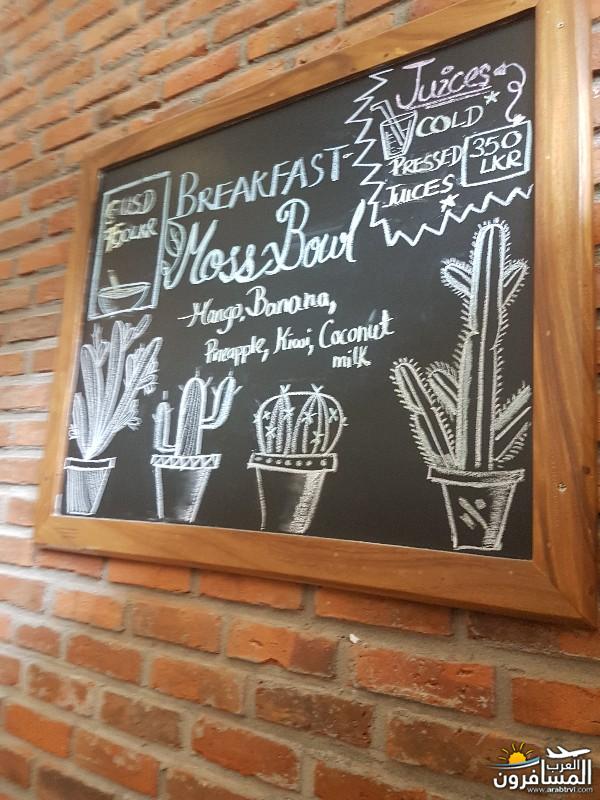 USD
BREAKFAST-
Moss Bowl
Mango, Banana,
Pineapple, Kiwi, Coconut
milk
Juices
COLD
PRESSED
JUICES
350
LKR
العرب
المسافرون
www.arabtrvl.com